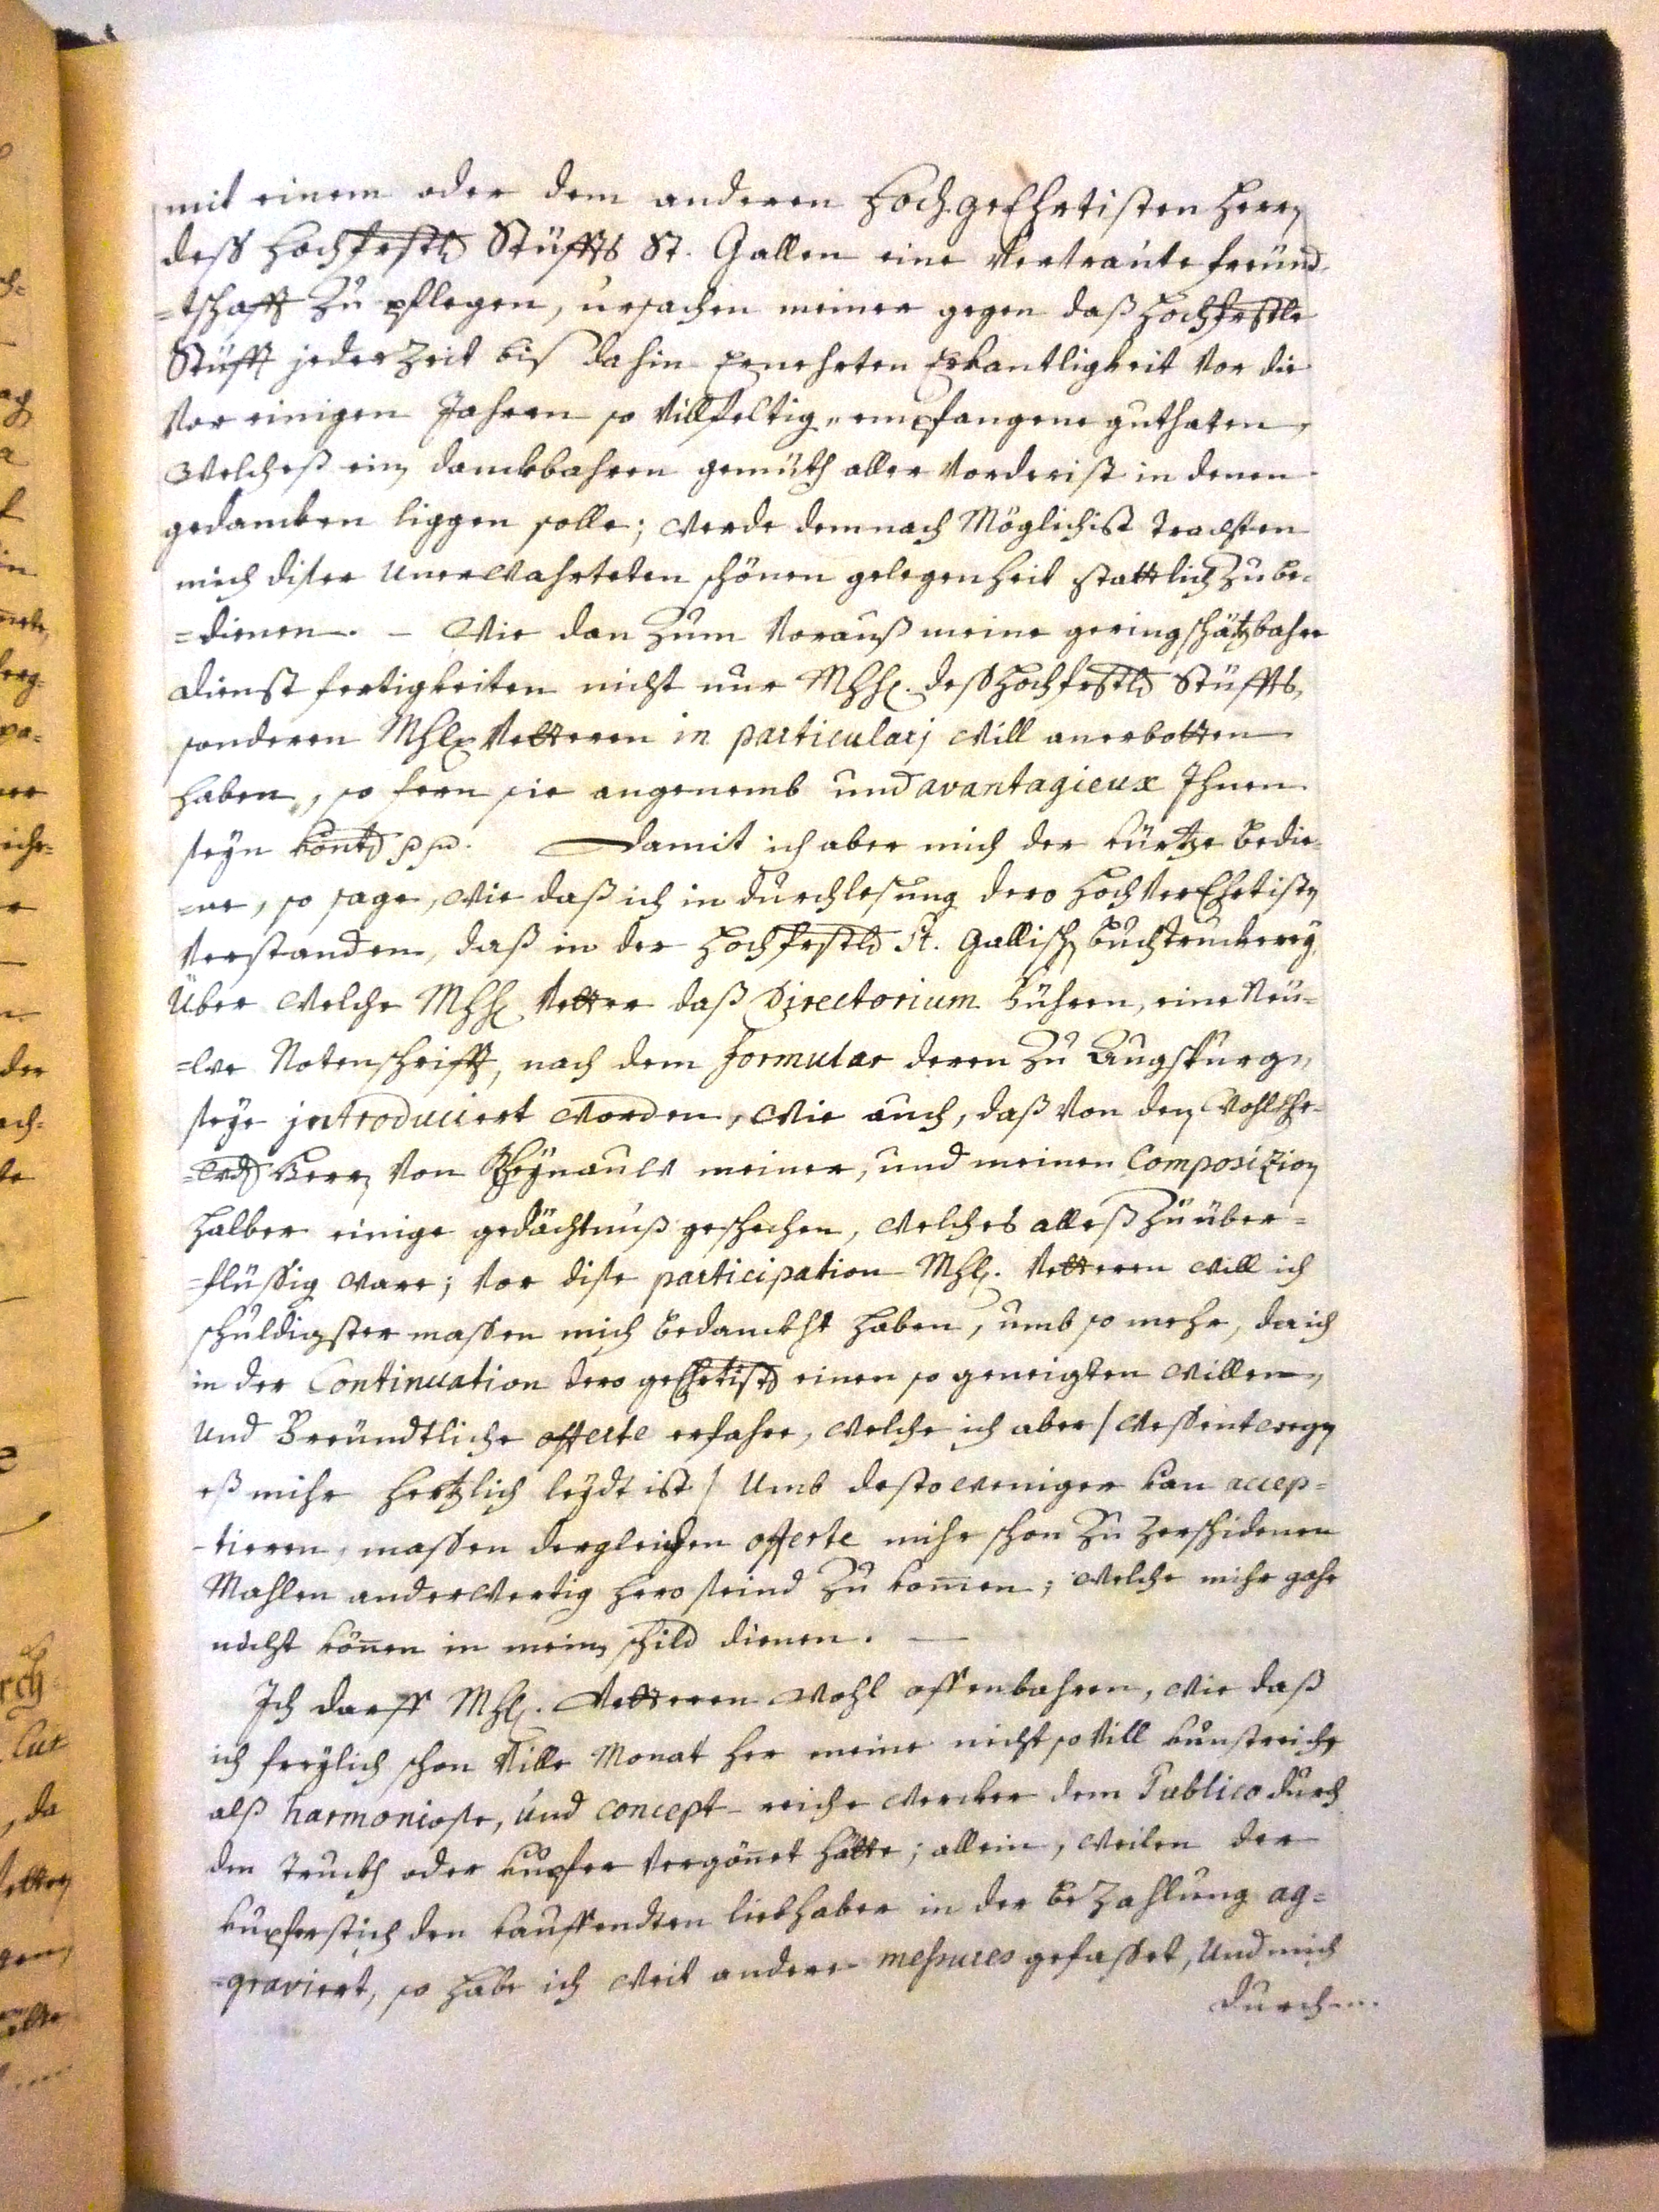 mit einem oder dem anderen Hoch.geEhrtisten Herrn
dess Hochfrstln Stüffts St. Gallen eine Vertraute freünd-
=tschafft Zu pflegen, ursachen meiner gegen daß Hochfrstle
Stüfft jederZeit biß dahin Ernehrten Erkantligkeit Vor die
Vor einigen Jahren so Villfeltig „ empfangene guthaten,
Welcheß ein danckbahren gemüth aller Vorderist in denen
gedancken liggen solle; Werde demnach Möglichist Trachten
mich diser UnerWahrteten schönen gelegenheit stattlich Zu be-
=dienen. – Wie dan Zum Vorauß meine geringschätzbahre
dienst fertigkeiten nicht nur MhH. deß Hochfrstln Stüffts,
sonderen MhH. Vetteren in particularj Will anerbotten
haben, so fern sie angenemb und avantagieux Ihnen
seyn köntn pp. Damit ich aber mich der Kürtze bedie-
=ne, so sage, Wie daß ich in durchlesung dero HochVerEhrtistn
Verstanden, daß in der Hochfrstln St. Gallischn Buchtruckerey,
Über Welche MhH. Vetter daß Directorium führen, eine Neü-
=we Notenschrifft, nach dem formular deren Zu Augspurg,
seye introduciert Worden, Wie auch, daß Von den WohlEhr-
=wdn Herrn Von Rheynauw meiner, und meinen Composizion
halber einige gedächtnuß geschehen, Welches alleß Zu über=
=flüssig Ware; Vor dise participation MhH. Vetteren Will ich
schuldigster massen mich bedanckht haben, umb so mehr, da ich
in der Continuation dero geEhrtistn einen so geneigten Willen,
Und Freündtliche offerte erfahre, Welche ich aber / Wessentwegen
eß mihr hertzlich leydt ist / Umb desto Weniger kan accep=
-tieren, massen dergleichen offerte mihr schon Zu Zerschidenen
Mahlen anderWertig hero seind Zu komen; Welche mihr gahr
nicht könen in mein schild dienen. —
Ich darff MhH. Vetteren Wohl offenbahren, Wie daß
ich freylich schon Ville Monat her meine nicht so Vill kunstreiche
alß harmoniose, und concept-reiche Wercker dem Publico durch
den Truckh oder Kupfer Vergönet hätte; allein, Weilen der
Kupferstich den kauffendten liebhaber in der beZahlung ag=
=graviert, so habe ich Weit andere mesures gefasset, Und mich
durch...